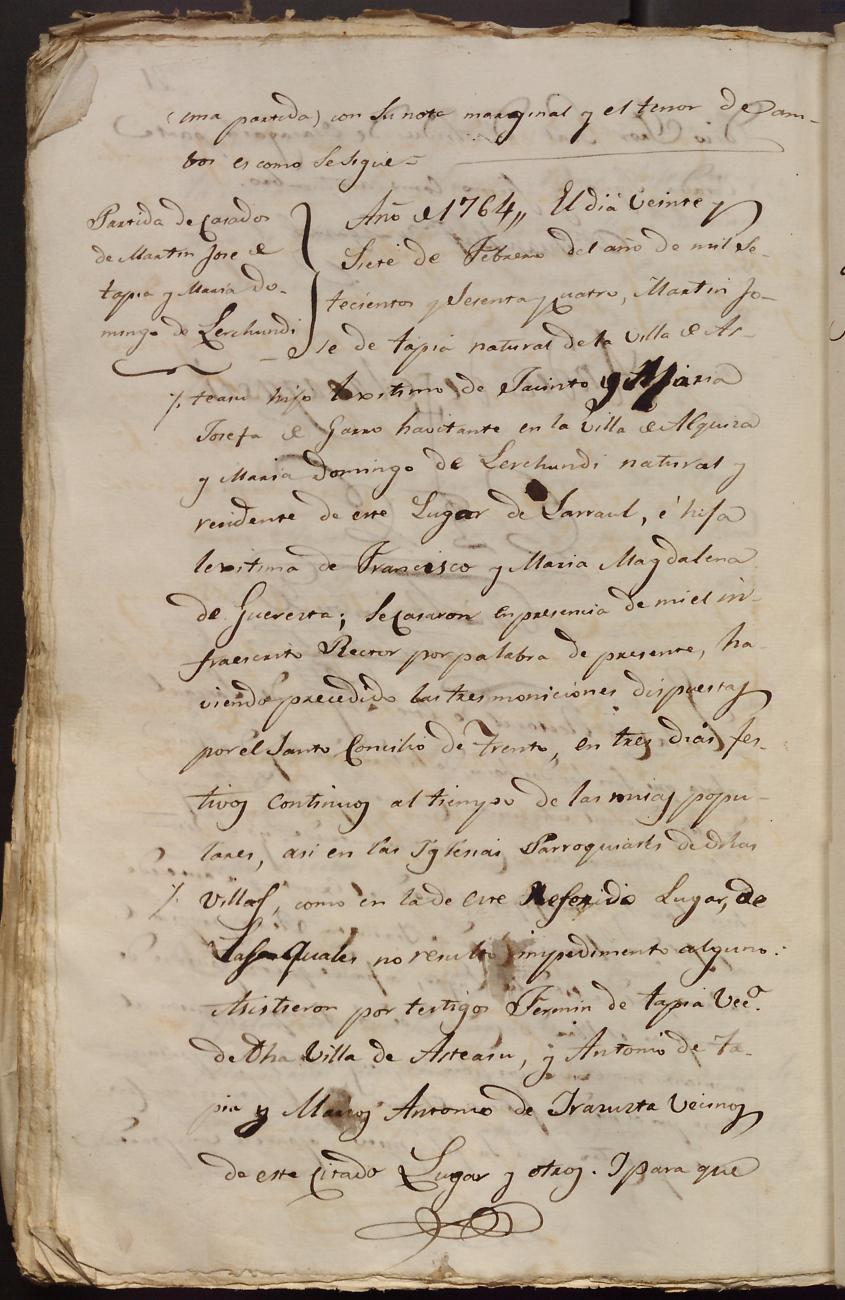 una partida) con su nota marginal y el tenor de am-
bos es como se sigue =
Partida de Casados
de Martin Jose de
tapia y Maria Do-
mingo de Lerchundi
Año de 1764,, El dia veinte y
Siete de Febrero del año de mil se-
tecientos y Sesenta y quatro, Martin Jo-
se de tapia natural de la Villa de As-
teasu hijo lexitimo de Jacinto y Maria
Josefa de Garro havitante en la Villa de Alquiza
y Maria Domingo de Lerchundi natural y
residente de este Lugar de Larraul, é hija
lexitima de Francisco y Maria Magdalena
de Guerezta; se casaron en presencia de mi el in-
fraescrito Rector por palabra de presente, ha-
viendo precedido las tres moniciones dispuestas
por el Santo Concilio de Trento, en tres dias fes-
tivos continuos al tiempo de las misas popu-
lares, asi en las Iglesias Parroquiales de dhas
Villas, como en la de este Referido Lugar, de
Las quales no resultó impedimento alguno:
Asistieron por testigos Fermin de tapia Vecº
de Dha Villa de Asteasu, y Antonio de Ta-
pia y Marcos Antonio de Irazuzta Vecinos
de este Citado Lugar y otros. I para que